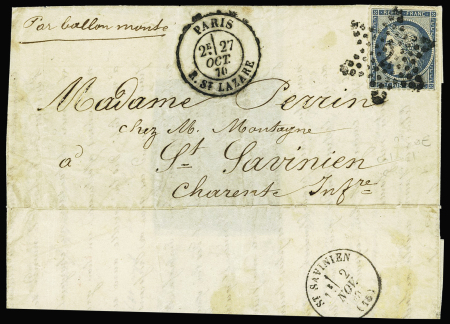 Par ballon monté
PARIS
2E 27
OCT.
70
R. ST LAZARE
REPUB. FRANC.
Madame Perrin
chez M. Montagne
à St. Savinien
Charente Infre.
ST SAVINIEN
2
NOV.
(16)